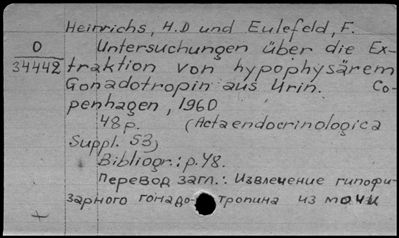 Heinrichs, H.D und Eulefeld, F.
O
34442
Untersuchungen über die Ex-
traktion von hypophysärem
Gonadotropin aus Urin. Co-
penhagen, 1960
48 p. (Acta endocrinologica
Suppl. 53)
Bibliogr.: p. 48.
Перевод загл.: Извлечение гипофи-
зарного гонадо- тропина из мочи
+